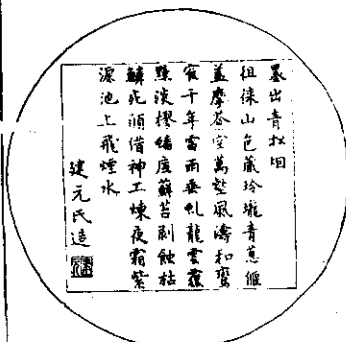 墨出青松烟
徂徠山色藏玲瓏青蔥偃
蓋摩蒼空萬壑風濤和鸞
千年雷雨垂虬龍雲
淡樛蘚苔剝蝕枯
鱗死借神工煉夜霜紫
源池上飛煙水
建元氏造